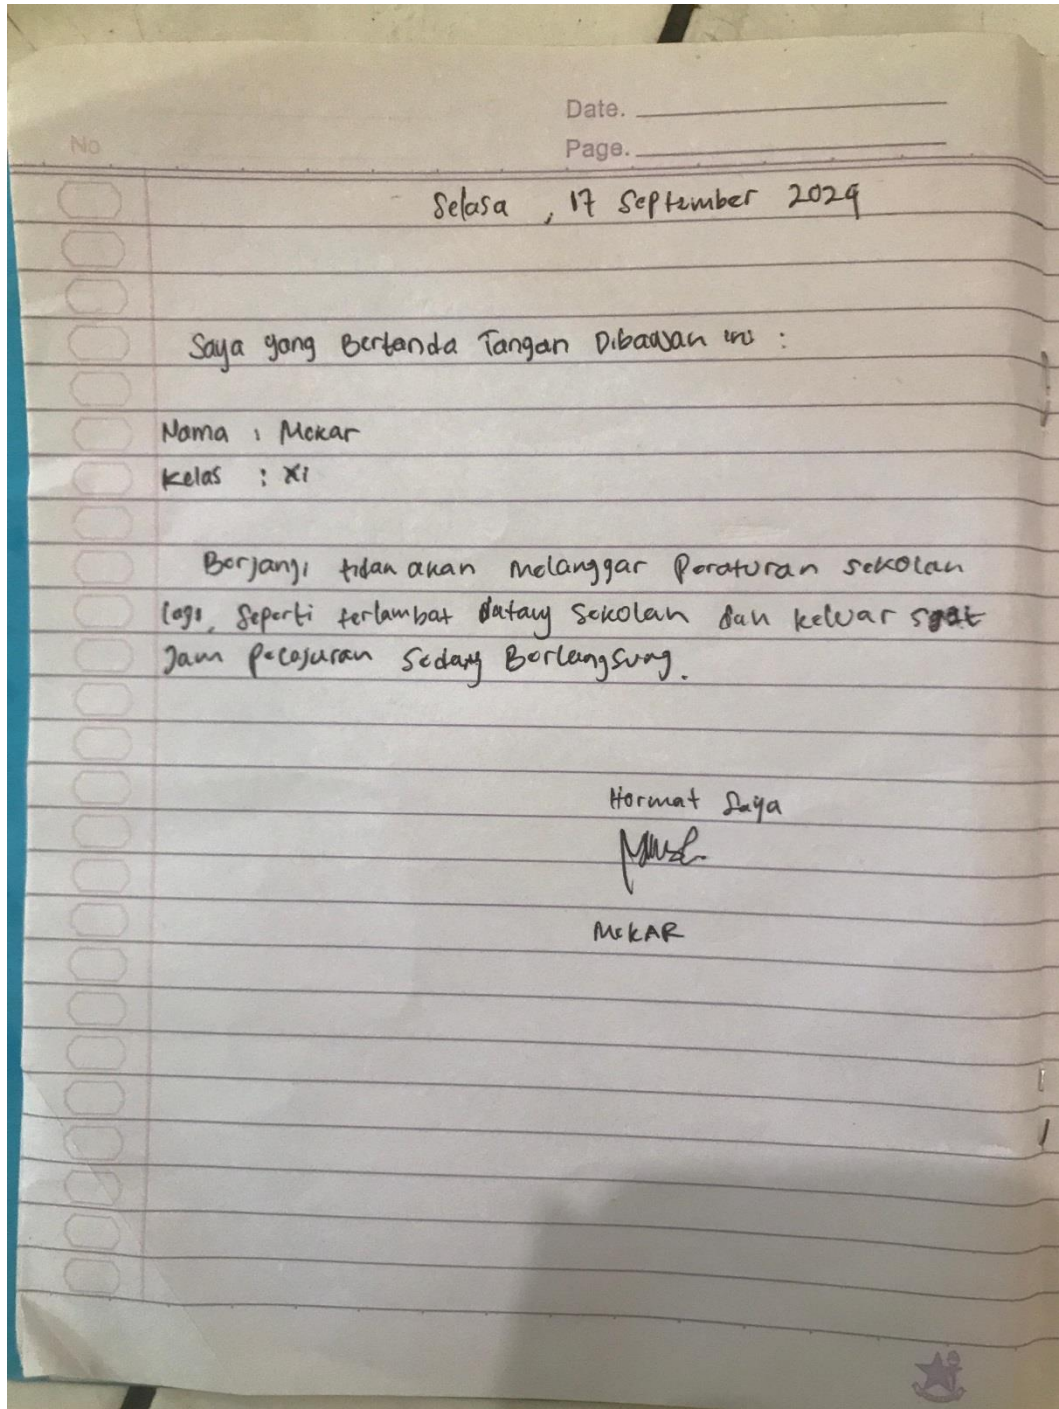 Date.
No
Page.
Selasa , 17 September 2024
Saya yang Bertanda Tangan Dibawah ini :
Nama : Mekar
Kelas : XI
Berjanji tidak akan melanggar Peraturan sekolah
lagi, seperti terlambat datang sekolah dan keluar saat
Jam pelajaran sedang Berlangsung.
Hormat Saya
MEKAR